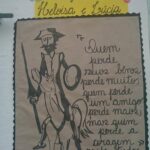 Heloisa e Lúcia
Quem
perde
seus bens
perde muito;
quem perde
um amigo
perde mais;
mas quem
perde a
coragem